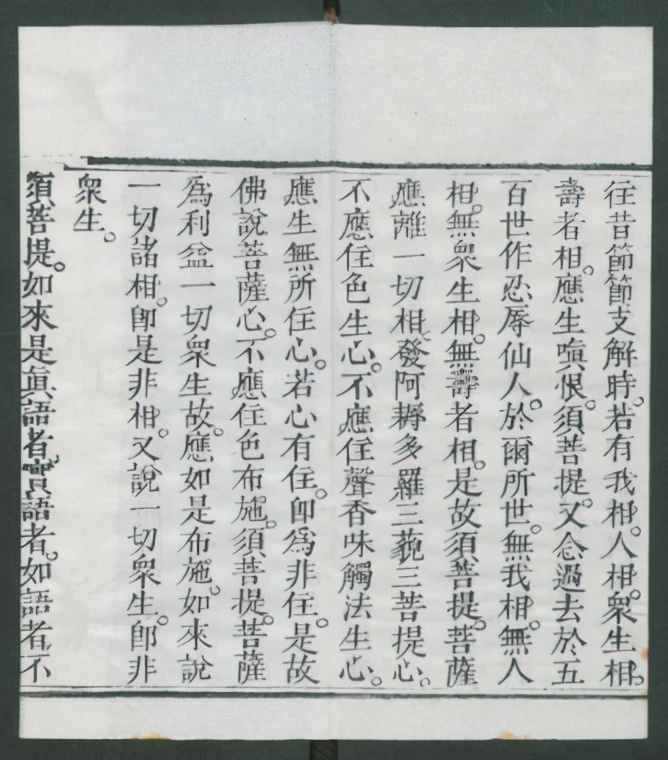 往昔節節支解時。若有我相。人相。衆生相。
壽者相。應生嗔恨。須菩提。又念過去於五
百世作忍辱仙人。於爾所世。無我相。無人
相。無衆生相。無壽者相。是故須菩提。菩薩
應離一切相。發阿耨多羅三藐三菩提心。
不應住色生心。不應住聲香味觸法生心。
應生無所住心。若心有住。卽爲非住。是故
佛說菩薩心。不應住色布施。須菩提。菩薩
爲利益一切衆生故。應如是布施。如來說
一切諸相。卽是非相。又說一切衆生。卽非
衆生。
須菩提。如來是眞語者。實語者。如語者。不